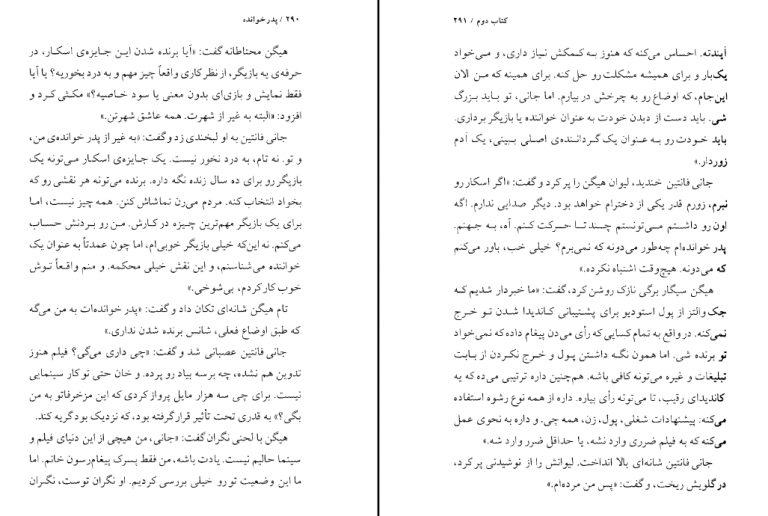 ۲۹۰ / پدرخوانده
هیگن محتاطانه گفت: «آیا برنده شدن این جایزه‌ی اسکار، در
حرفه‌ی یه بازیگر، از نظر کاری واقعاً چیز مهم و به درد بخوریه؟ یا آیا
فقط نمایش و بازی‌ای بدون معنی یا سود خاصیه؟» مکثی کرد و
افزود: «البته به غیر از شهرت. همه عاشق شهرتن.»
جانی فانتین به او لبخندی زد و گفت: «به غیر از پدر خوانده‌ی من،
و تو. نه تام، به درد نخور نیست. یک جایزه‌ی اسکار می‌تونه یک
بازیگر رو برای ده سال زنده نگه داره. برنده می‌تونه هر نقشی رو که
بخواد انتخاب کنه. مردم می‌رن تماشاش کنن. همه چیز نیست، اما
برای یک بازیگر مهم‌ترین چیزه در کارش. من رو بردنش حساب
می‌کنم. نه این‌که خیلی بازیگر خوبی‌ام، اما چون عمدتاً به عنوان یک
خواننده می‌شناسنم، و این نقش خیلی محکمه. و منم واقعاً توش
خوب کار کردم، بی‌شوخی.»
تام هیگن شانه‌ای تکان داد و گفت: «پدر خوانده‌ات به من می‌گه
که طبق اوضاع فعلی، شانس برنده شدن نداری.»
جانی فانتین عصبانی شد و گفت: «چی داری می‌گی؟ فیلم هنوز
تدوین هم نشده، چه برسه بیاد رو پرده. و خان حتی تو کار سینمایی
نیست. برای چی سه هزار مایل پرواز کردی که این مزخرفاتو به من
بگی؟» به قدری تحت تأثیر قرار گرفته بود، که نزدیک بود گریه کند.
هیگن با لحنی نگران گفت: «جانی، من هیچی از این دنیای فیلم و
سینما حالیم نیست. یادت باشه، من فقط پسرک پیغام‌رسون خانم. اما
ما این وضعیت تو رو خیلی بررسی کردیم. او نگران توست، نگران
کتاب دوم / ۲۹۱
آینده‌ته. احساس می‌کنه که هنوز به کمکش نیاز داری، و می‌خواد
یک‌بار و برای همیشه مشکلت رو حل کنه. برای همینه که من الان
این‌جام، که اوضاع رو به چرخش در بیارم. اما جانی، تو باید بزرگ
شی. باید دست از دیدن خودت به عنوان خواننده یا بازیگر برداری.
باید خودت رو به عنوان یک گرداننده‌ی اصلی ببینی، یک آدم
زوردار.»
جانی فانتین خندید، لیوان هیگن را پر کرد و گفت: «اگر اسکار رو
نبرم، زورم قدر یکی از دخترام خواهد بود. دیگر صدایی ندارم. اگه
اون رو داشتم می‌تونستم چند تا حرکت کنم. آه، به جهنم.
پدر خوانده‌ام چه‌طور می‌دونه که نمی‌برم؟ خیلی خب، باور می‌کنم
که می‌دونه. هیچ‌وقت اشتباه نکرده.»
هیگن سیگار برگی نازک روشن کرد، گفت: «ما خبردار شدیم که
جک والتز از پول استودیو برای پشتیبانی کاندیدا شدن تو خرج
نمی‌کنه. در واقع به تمام کسایی که رأی می‌دن پیغام داده که نمی‌خواد
تو برنده شی. اما همون نگه داشتن پول و خرج نکردن از بابت
تبلیغات و غیره می‌تونه کافی باشه. هم‌چنین داره ترتیبی می‌ده که یه
کاندیدای رقیب، تا می‌تونه رأی بیاره. داره از همه نوع رشوه استفاده
می‌کنه: پیشنهادات شغلی، پول، زن، همه چی. و داره به نحوی عمل
می‌کنه که به فیلم ضرری وارد نشه، یا حداقل ضرر وارد شه.»
جانی فانتین شانه‌ای بالا انداخت. لیوانش را از نوشیدنی پر کرد،
در گلویش ریخت، و گفت: «پس من مرده‌ام.»